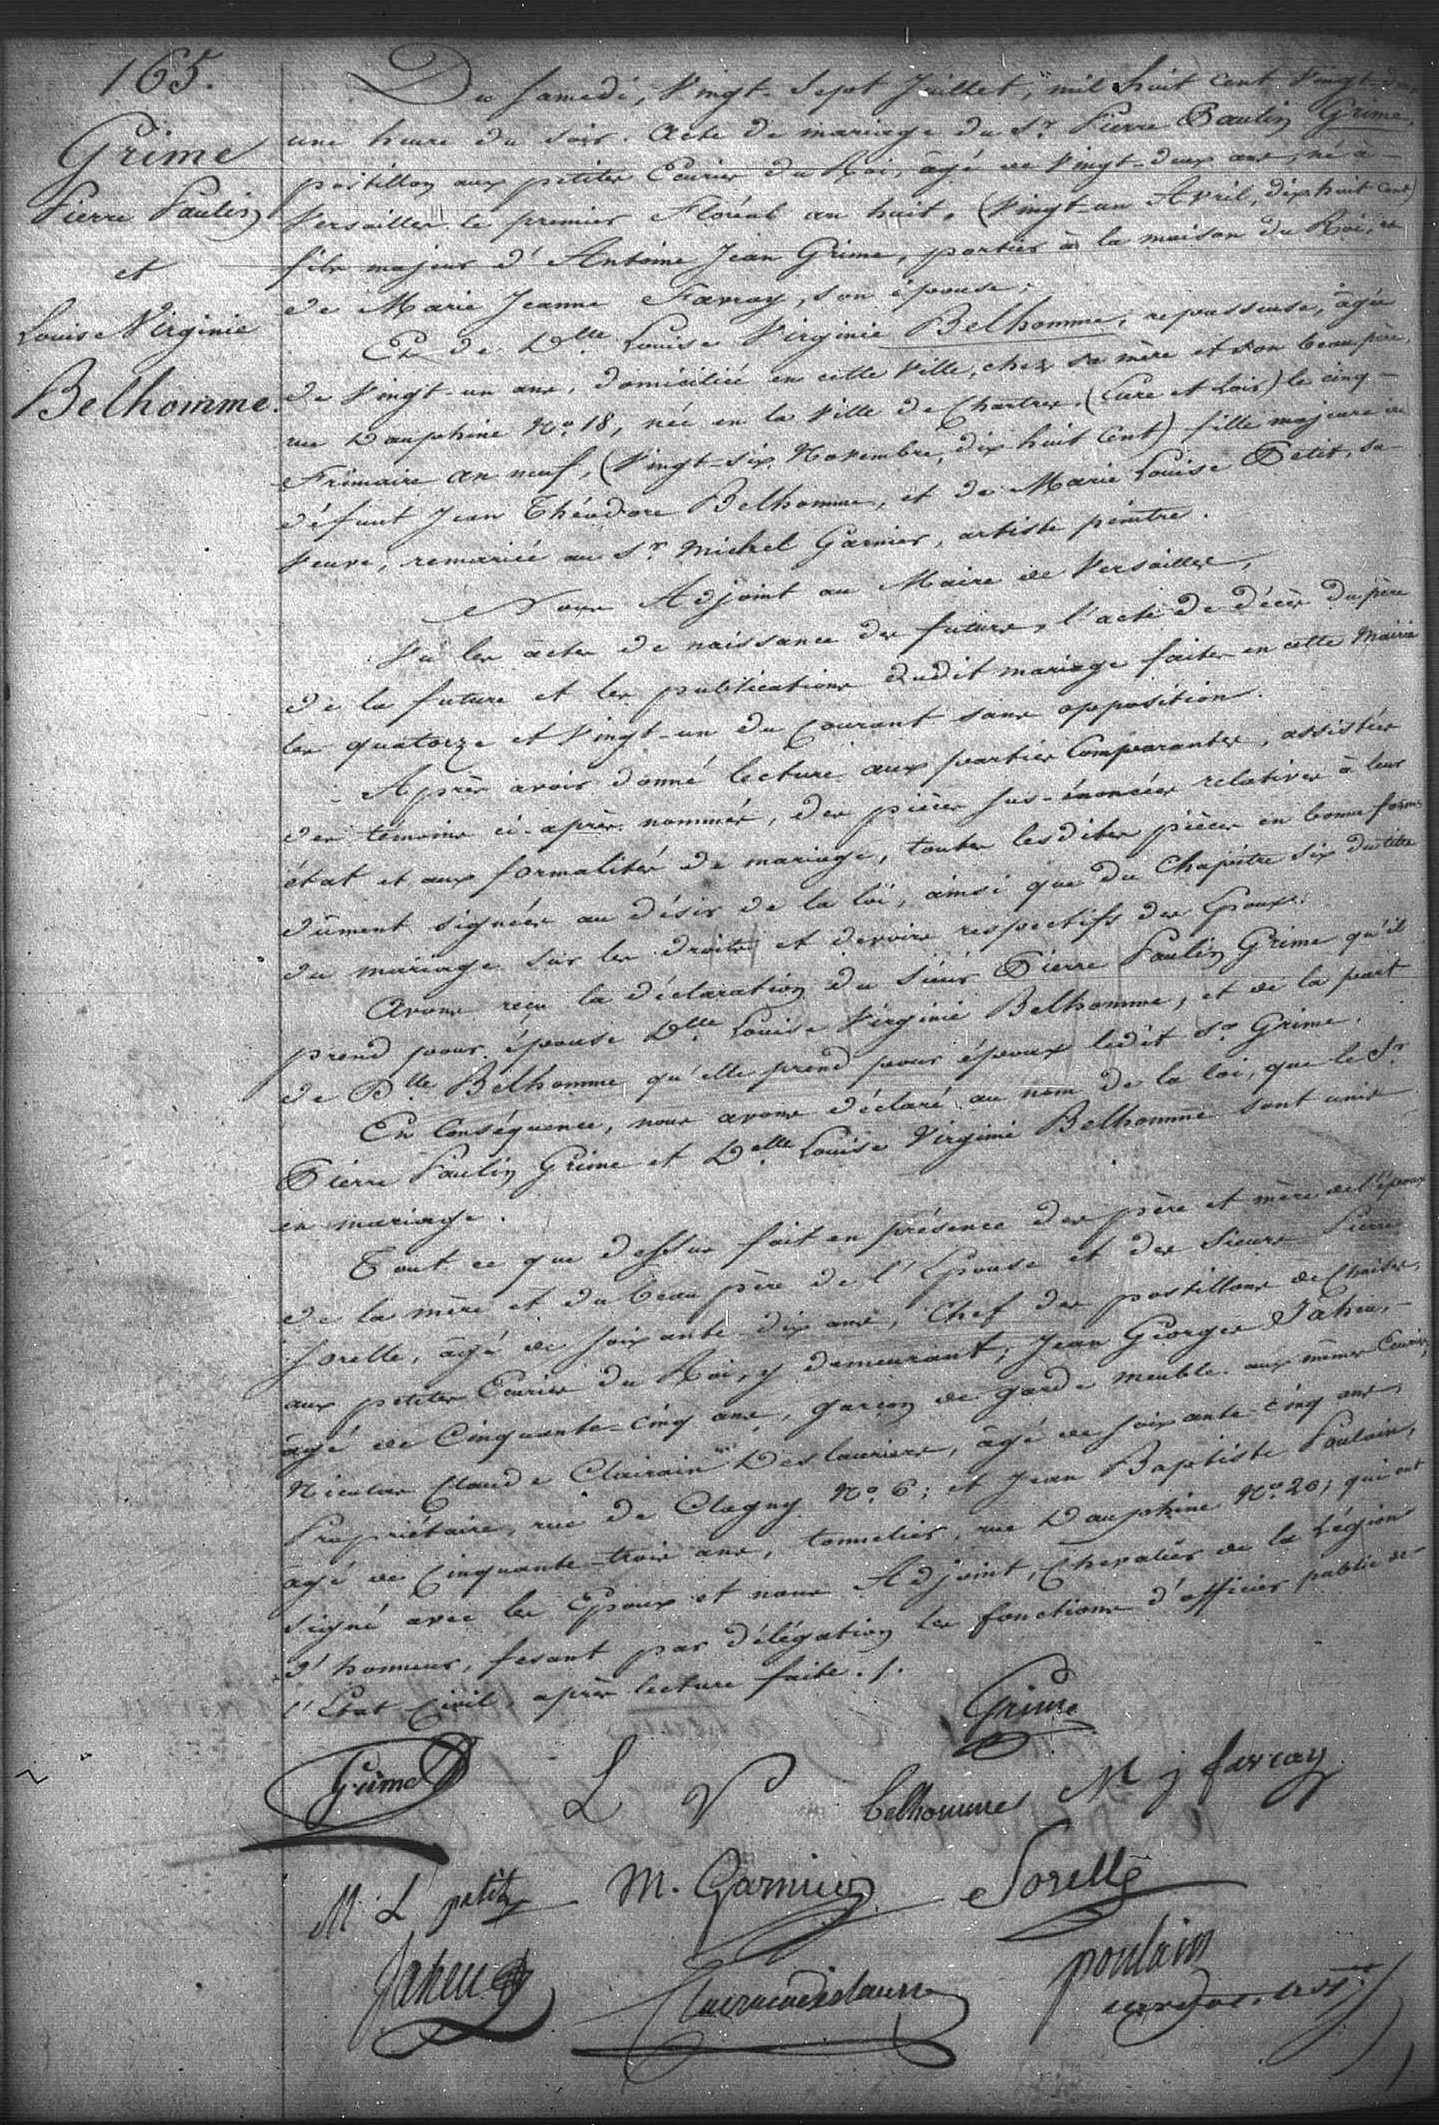 165.
Grime
Pierre Paulin
et
Louise Virginie
Belhomme.
Du Samedi, Vingt-Sept Juillet, mil huit cent Vingt-deux,
une heure du soir. Acte de mariage du Sr. Pierre Paulin Grime,
postillon aux petites Ecuries du Roi, âgé de Vingt-deux ans, né à
Versailles le premier Floréal an huit, (Vingt-un Avril, dix huit cent)
fils majeur d'Antoine Jean Grime, portier à la maison du Roi, et
de Marie Jeanne Favray, son épouse;
Et de Dlle Louise Virginie Belhomme, repasseuse, âgée
de Vingt-un ans, domiciliée en cette Ville, chez sa mère et son beau père,
rue Dauphine No. 18, née en la Ville de Chartres, (Eure et Loir) le cinq
Frimaire an neuf, (Vingt-six Novembre, dix huit Cent) fille majeure de
défunt Jean Théodore Belhomme, et de Marie Louise Petit, sa
Veuve, remariée au Sr. Michel Garnier, artiste peintre.
Nous Adjoint au Maire de Versailles,
Vu les actes de naissance des futurs, l'acte de décès du père
de la future et les publications dudit mariage faites en cette Mairie
les quatorze et Vingt-un du Courant sans opposition.
Après avoir donné lecture aux parties Comparantes, assistées
des témoins ci-après nommés, des pièces sus-énoncées relatives à leur
état et aux formalités de mariage, toutes lesdites pièces en bonne forme
dûment signées au désir de la loi, ainsi que du Chapitre six du titre
du mariage sur les droits et devoirs respectifs des Epoux.
Avons reçu la déclaration du Sieur Pierre Paulin Grime qu'il
prend pour épouse Dlle Louise Virginie Belhomme, et de la part
de Dlle Belhomme qu'elle prend pour époux ledit Sr. Grime.
En Conséquence, nous avons déclaré au nom de la loi, que le Sr.
Pierre Paulin Grime et Delle Louise Virginie Belhomme sont unis
en mariage.
Tout ce que dessus fait en présence des père et mère de l'époux
de la mère et du beau père de l'Epouse et des Sieurs Pierre
Sorelle, âgé de soixante-dix ans, Chef des postillons de Chaises,
aux petites Ecuries du Roi, y demeurant; Jean Georges Jaheu,
âgé de Cinquante-cinq ans, garçon de garde meuble aux mêmes Ecuries,
Nicolas Claude Clairain Deslauriers, âgé de soixante-cinq ans,
Propriétaire, rue de Clagny No. 6; et Jean Baptiste Poulain,
âgé de Cinquante-trois ans, tonnelier, rue Dauphine No. 20; qui ont
signé avec les Epoux et nous Adjoint, Chevalier de la Légion
d'honneur, fesant par délégation les fonctions d'officier public de
l'Etat Civil, après lecture faite./.
Grime
Grime L V belhomme M j favray
M. L petit M. Garnier Sorelle
Jaheu poulain